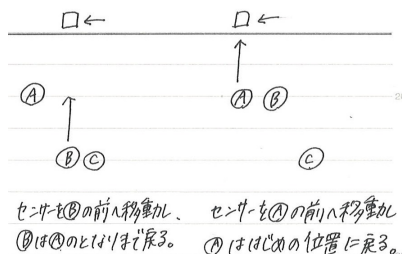 A
B
C
A
B
C
センサーをBの前へ移動し、
BはAのとなりまで戻る。
センサーをAの前へ移動し
Aははじめの位置に戻る。